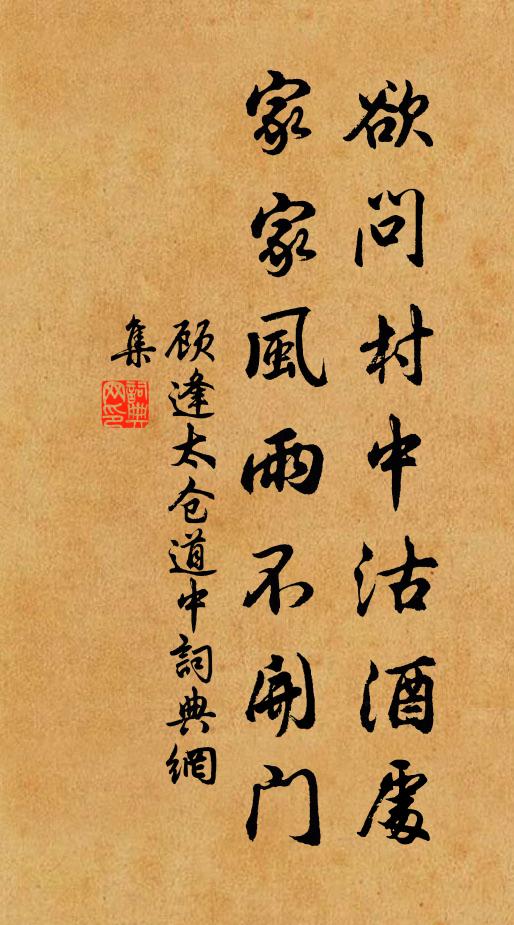 欲問村中沽酒處
家家風雨不開門
顾逢太仓道中詞典網
集
詞典
网印